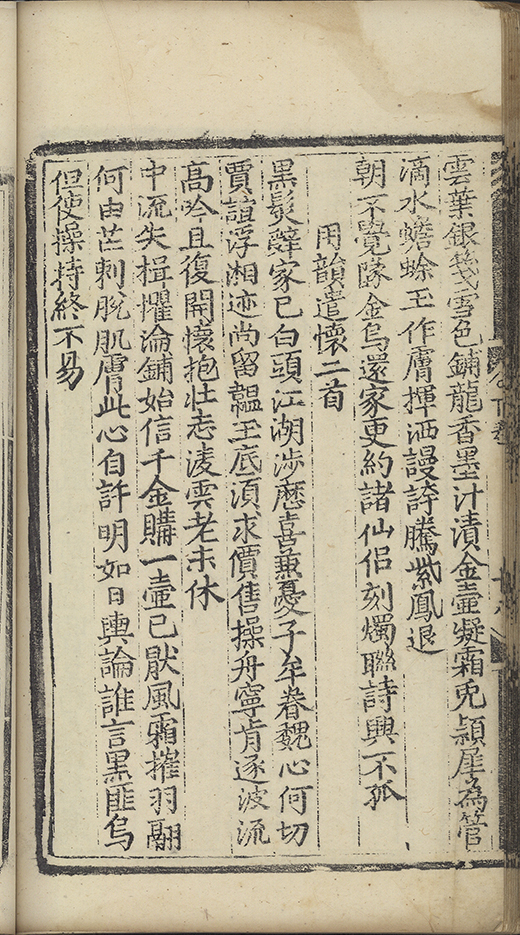 雲葉銀箋雪色鋪龍香墨汁漬金壺凝霜兎頴犀為管
滴水蟾蜍玉作膚揮洒謾誇騰紫鳳退
朝不覺墜金烏還家更約諸仙侣刻燭聮詩興不孤
用韻遣懷二首
黑髮辭家已白頭江湖涉歷喜兼憂子牟眷魏心何切
賈誼浮湘迹尚留韞玉底湏求價售操舟寧肯逐波流
高吟且復開懷抱壯志凌雲老未休
中流失楫懼淪鋪始信千金購一壺已厭風霜摧羽翮
何由芒刺脫肌膚此心自許明如日輿論誰言黑匪烏
但使操持終不易